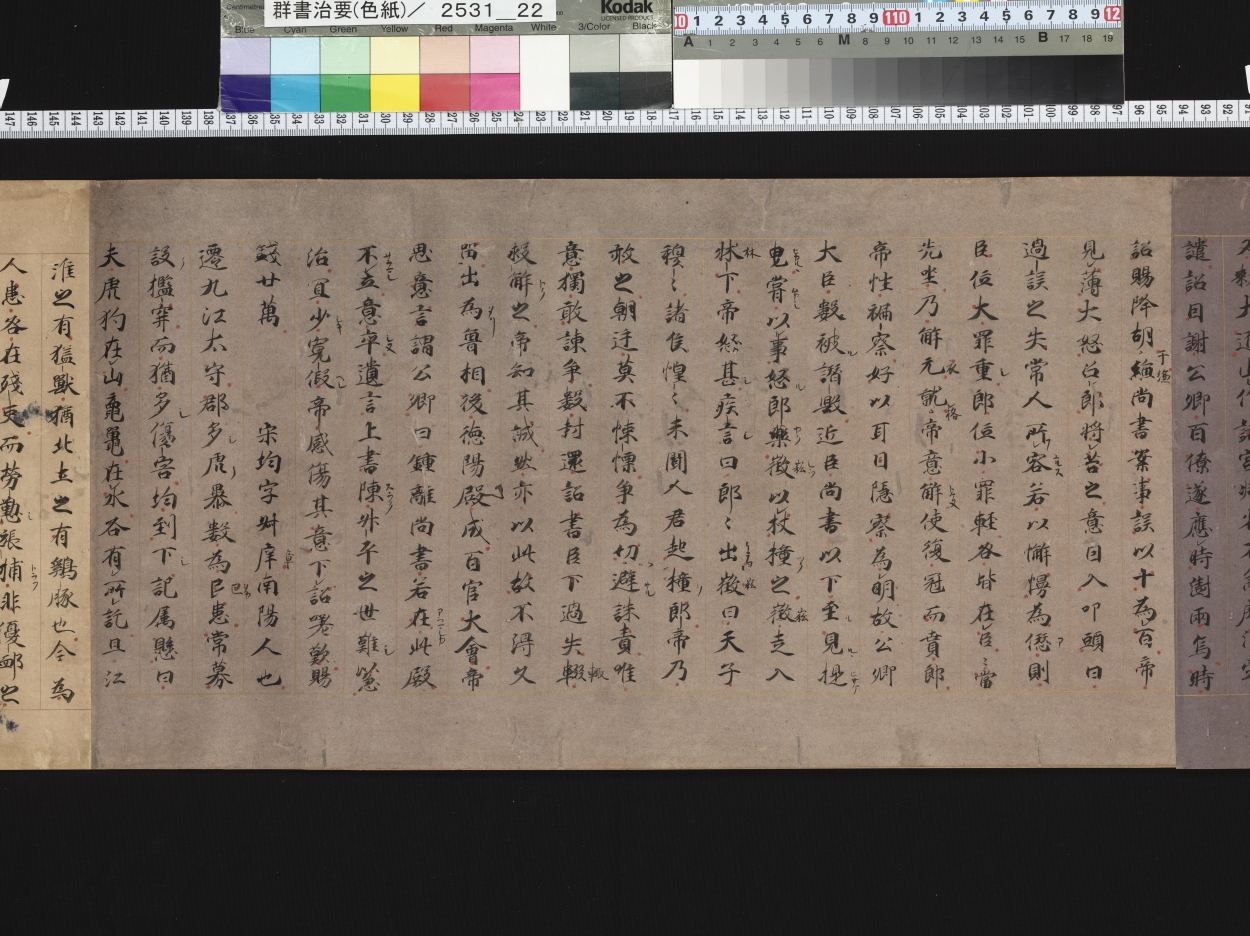 群書治要(色紙)／ 2531__22
Kodak
LICENSED PRODUCT
Blue Cyan Green Yellow Red Magenta White 3/Color Black
譴詔因謝公卿百僚遂應時澍雨焉時
詔賜降胡縑尚書案事誤以十為百帝
見薄大怒召郎將笞之意因入叩頭曰
過誤之失常人所容若以懈慢為愆則
臣位大罪重郎位小罪輕咎皆在臣〻當
先坐乃解衣就格帝意解使復冠而貰郎
帝性褊察好以耳目隱發為明故公卿
大臣數被詆毀近臣尚書以下至見提
曳常以事怒郎藥崧以杖撞之崧走入
床下帝怒甚疾言曰郎〻出崧曰天子
穆〻諸侯惶〻未聞人君起撞郎帝乃
赦之朝廷莫不悚慄爭為切避誅責唯
意獨敢諫爭數封還詔書臣下過失輙
救解之帝知其誠然亦以此故不得久
留出為魯相後德陽殿成百官大會帝
思意言謂公卿曰鍾離尚書若在此殿
不立意卒遺言上書陳升平之世難以急
治宜少寬假帝感傷其意下詔嗟歎賜
錢廿萬 宋均字叔庠南陽人也
遷九江太守郡多虎暴數為民患常募
設檻穽而猶多傷害均到下記屬懸曰
夫虎狗在山黿鼉在水各有所託且江
淮之有猛獸猶北土之有鷄豚也今為
人患咎在殘吏而勞勤張捕非優卹之